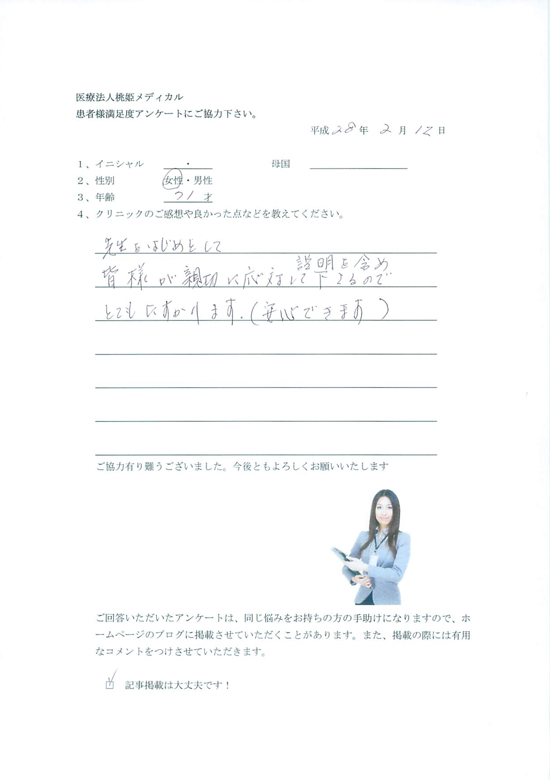 医療法人桃姫メディカル
患者様満足度アンケートにご協力下さい。
平成 28 年 2 月 12 日
1、イニシャル ・ 母国
2、性別 女性・男性
3、年齢 71 才
4、クリニックのご感想や良かった点などを教えてください。
先生をはじめとして
説明を含め
皆様が親切に応対して下さるので
とても たすかります。(安心できます)
ご協力有り難うございました。今後ともよろしくお願いいたします
ご回答いただいたアンケートは、同じ悩みをお持ちの方の手助けになりますので、ホ
ームページのブログに掲載させていただくことがあります。また、掲載の際には有用
なコメントをつけさせていただきます。
記事掲載は大丈夫です！